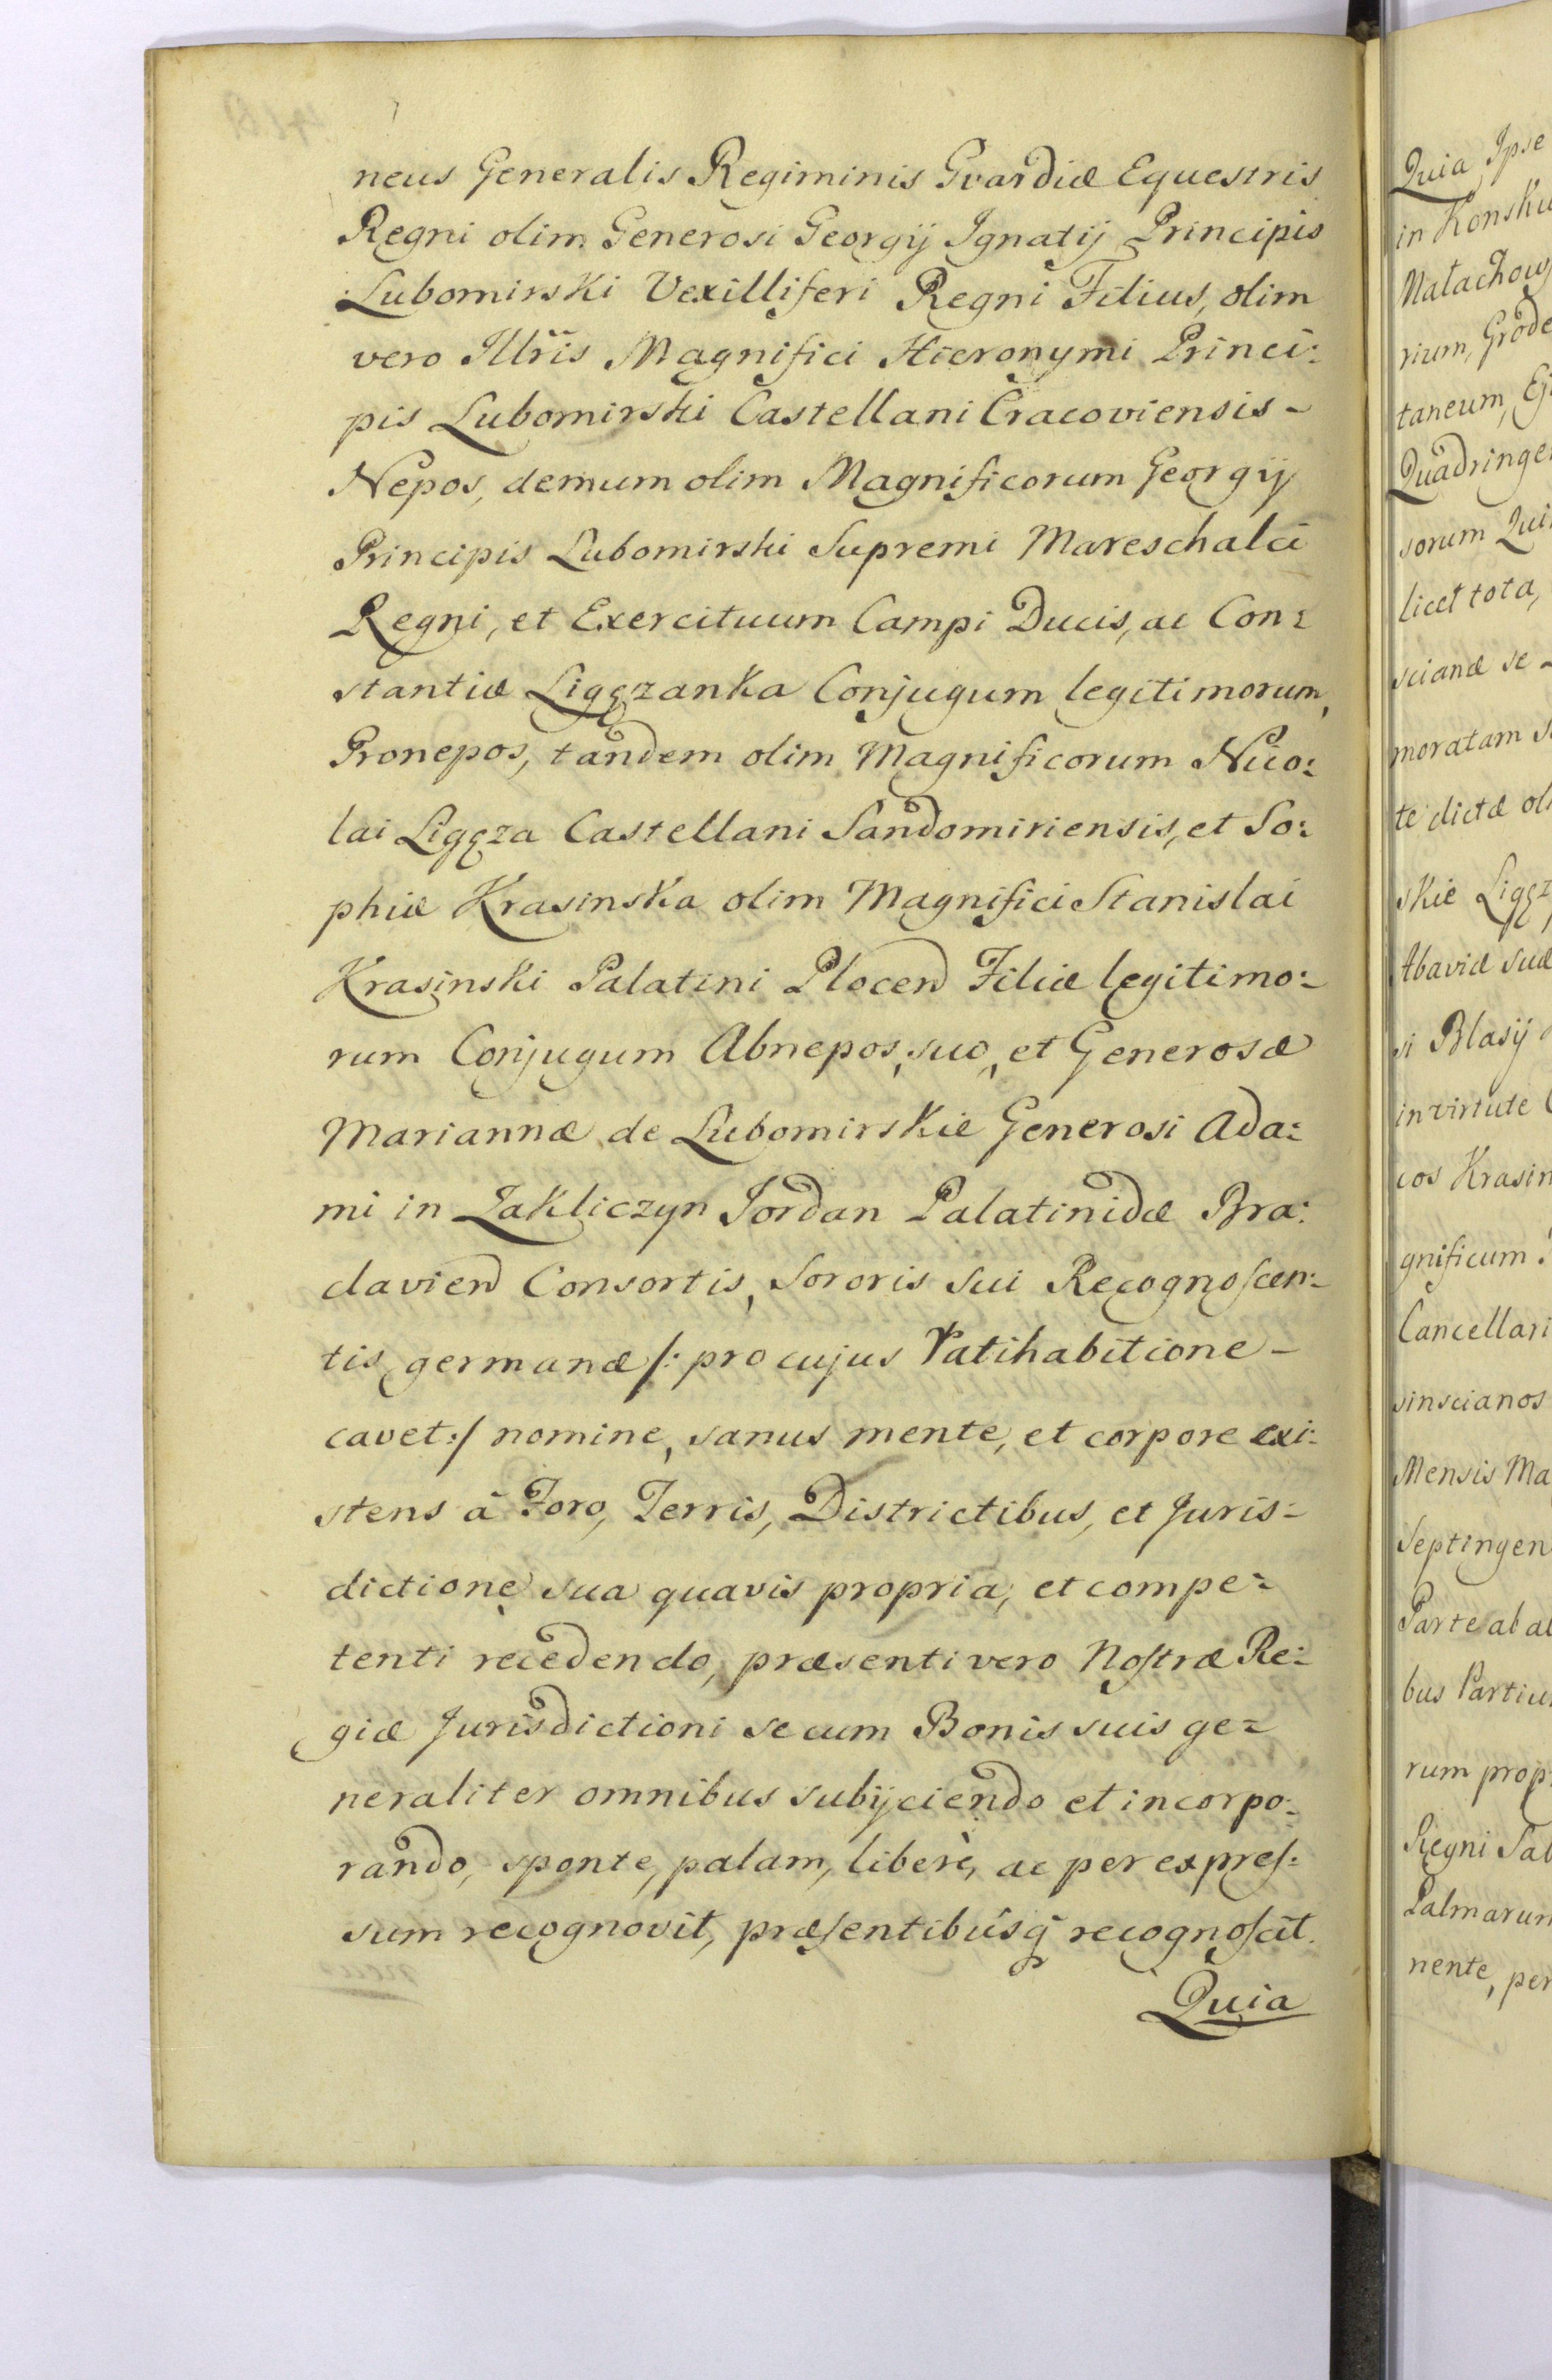 neus Generalis Regiminis Gvardiæ Equestris
Regni olim Generosi Georgij Ignatij Principis
Lubomirski Vexilliferi Regni Filius, olim
vero Illris Magnifici Hieronymi Princi:
pis Lubomirski Castellani Cracoviensis -
Nepos, demum olim Magnificorum Georgij
Principis Lubomirski Supremi Mareschalci
Regni, et Exercituum Campi Ducis, ac Con:
stantiæ Ligęzanka Conjugum legitimorum,
Pronepos, tandem olim Magnificorum Nico:
lai Ligęza Castellani Sandomiriensis, et So:
phiæ Krasinska olim Magnifici Stanislai
Krasinski Palatini Plocen Filiæ legitimo:
rum Conjugum Abnepos, suo, et Generosæ
Mariannæ de Lubomirskie Generosi Ada:
mi in Zakliczyn Jordan Palatinidæ Bra:
clavien Consortis, Sororis Sui Recognoscen:
tis germanæ /: pro cujus Ratihabitione -
cavet :/ nomine, sanus mente, et corpore exi:
stens à Foro, Terris, Districtibus, et Juris:
dictione sua quavis propria, et compe:
tenti recedendo, præsenti vero Nostræ Re:
giæ Jurisdictioni se cum Bonis suis ge:
neraliter omnibus subijciendo et incorpo:
rando, sponte, palam, liberè, ac per expres:
sum recognovit, præsentibusq recognoscit.
Quia
Quia Ipse
in Konsk
Małachow
rium, Grode
taneum, Ej
Quadringe
sorum Qui
licet tota,
scianæ se -
moratam
te dictæ ol
skie Ligęz
Abaviæ suæ
si Blasij
in virtute
cos Krasin
gnificum
Cancellari
sinscianos
Mensis Ma
Septingen
Parte ab al
bus Partiu
rum prop
Regni Pal
Palmarum
nente, per